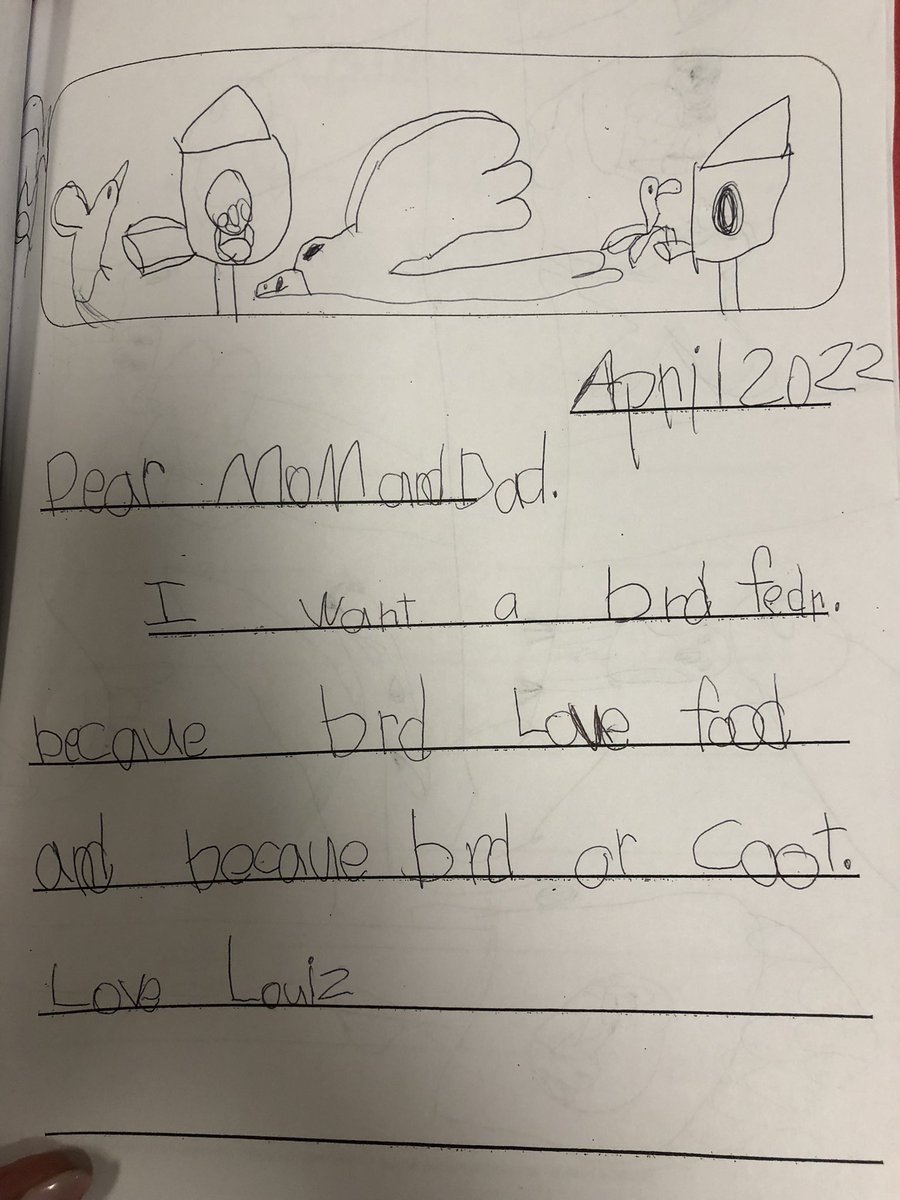 April 2022
Dear MoM and Dad.
I want a brd fedr.
becaue brd Love food
and becaue brd or Coot.
Love Louiz